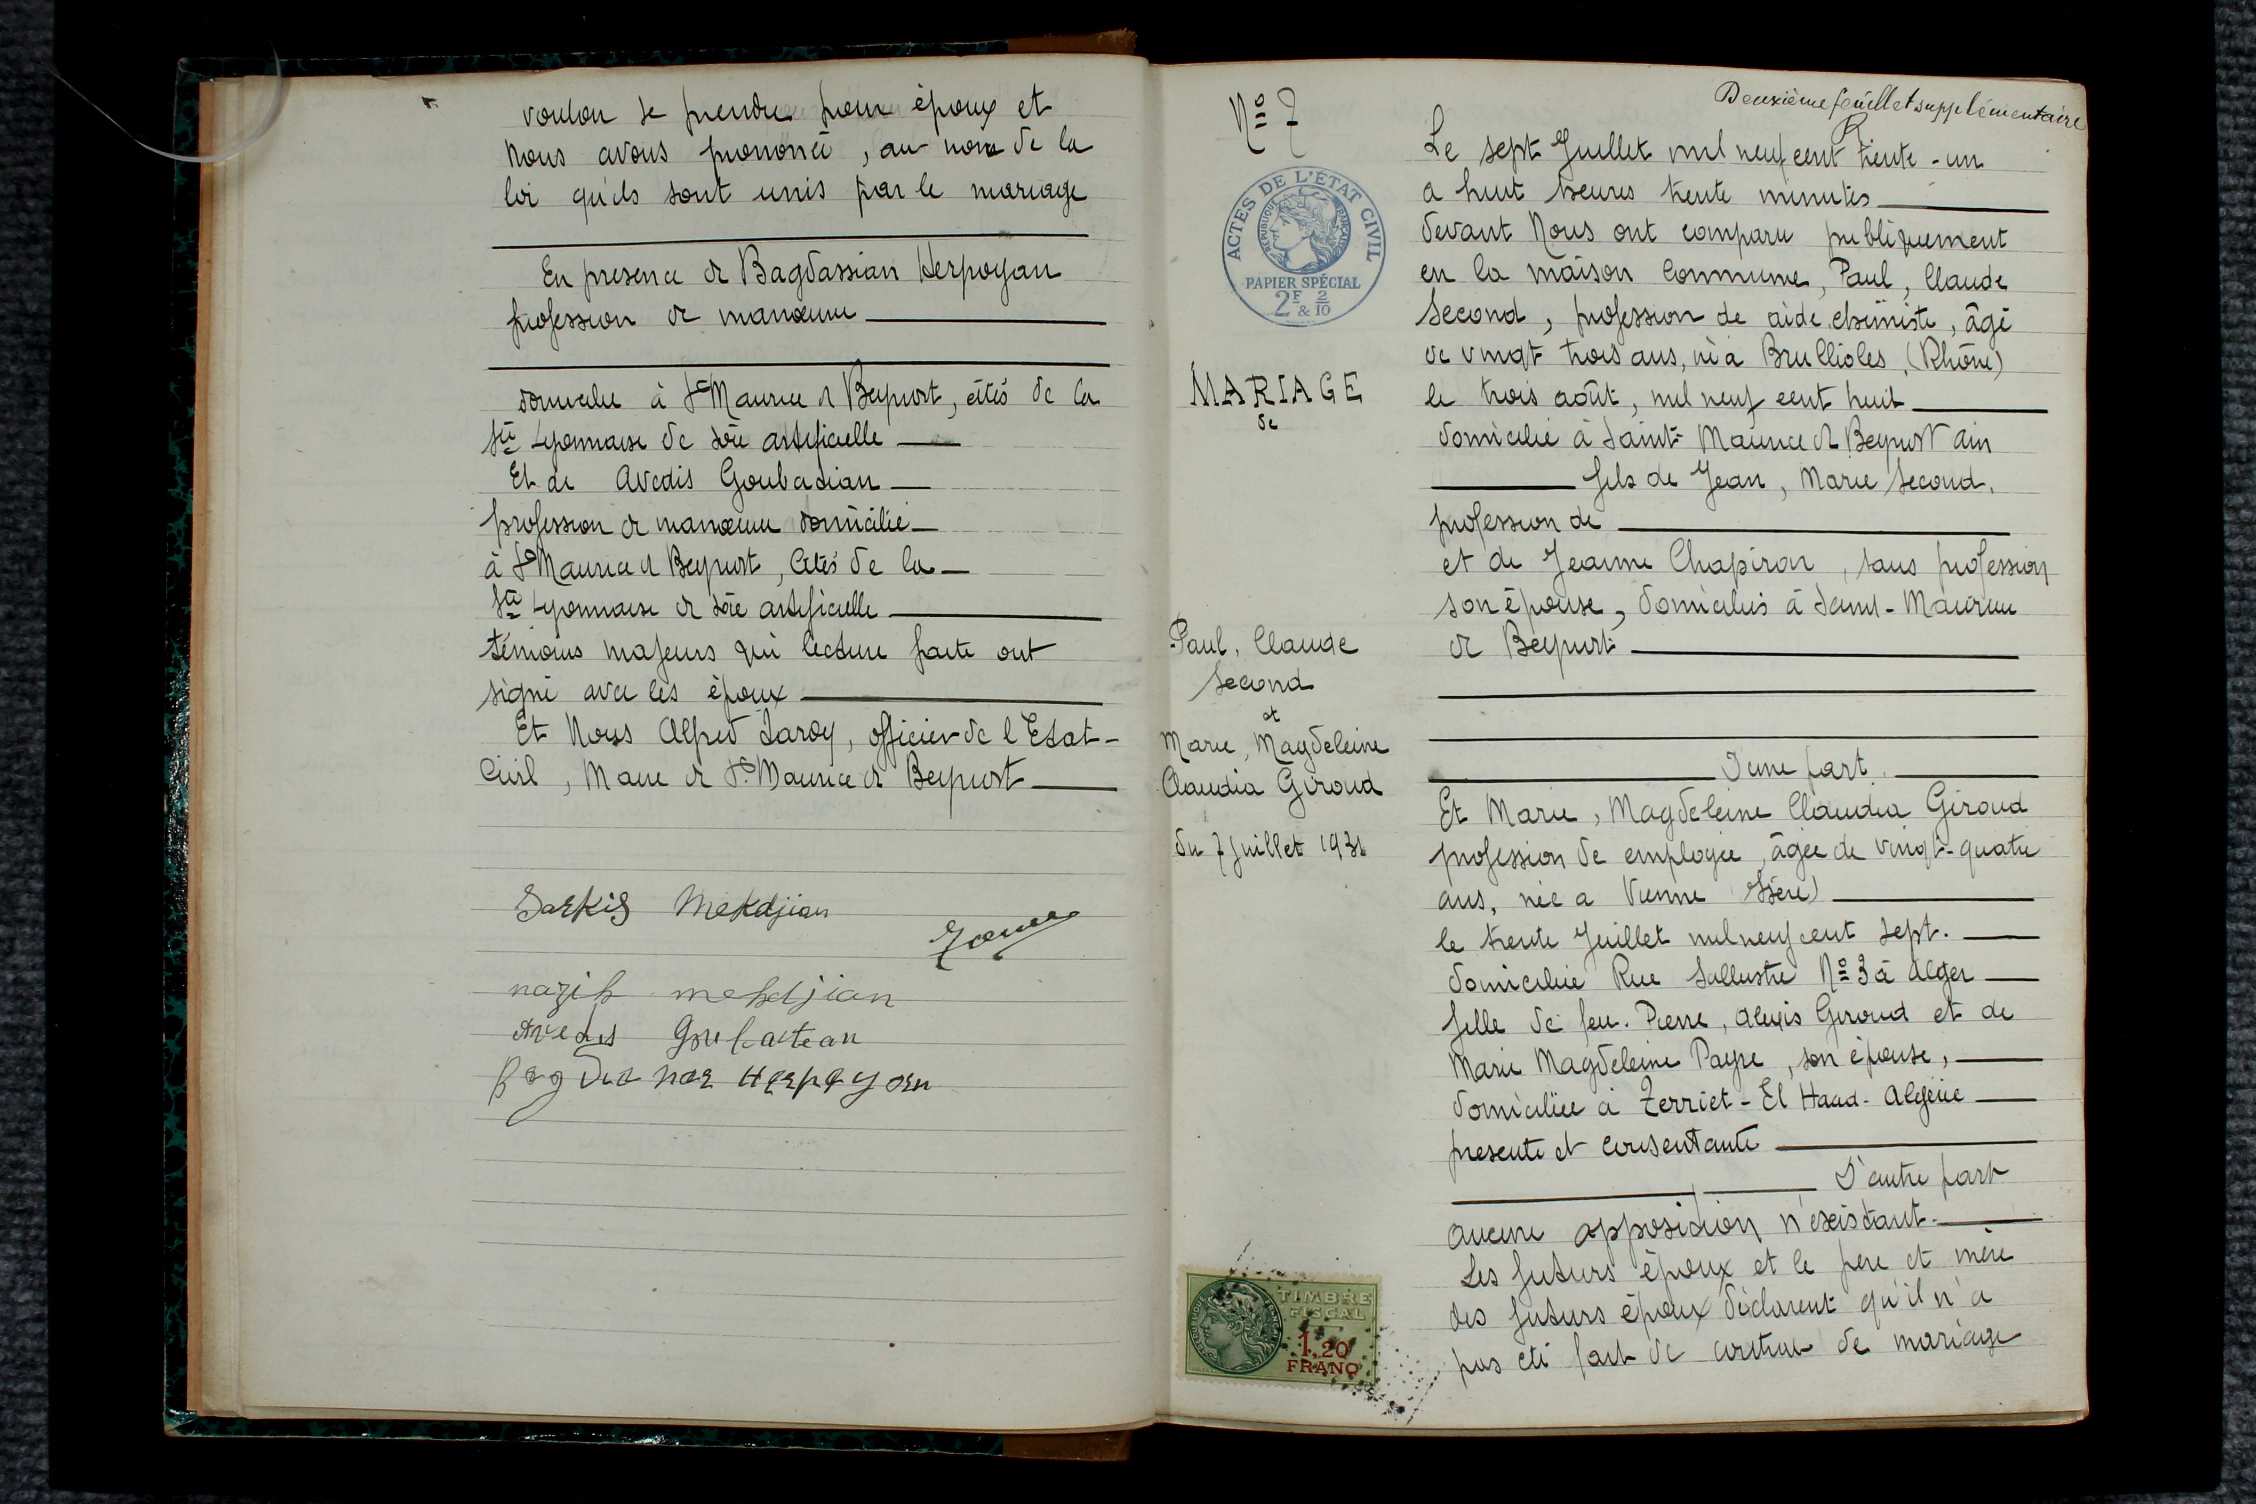 voulon se prendre pour époux et
Nous avons prononcé, au nom de la
loi qu'ils sont unis par le mariage
En presence de Bagdassian Herpoyan
profession de manœuvre
domicilié à St Maurice de Beynost, cités de la
Sté Lyonnaise de soie artificielle
Et de Avedis Goubadian
profession de manœuvre domicilié
à St Maurice de Beynost, Cités de la
Sté Lyonnaise de soie artificielle
témoins majeurs qui lecture faite ont
signé avec les époux
Et Nous Alfred Jaroy, officier de l'Etat-
Civil, Maire de St. Maurice de Beynost
Sarkis Mekdjian
nazik mekdjian
Avedis
Deuxième feuillet supplémentaire
No 7
ACTES DE L'ÉTAT CIVIL
RÉPUBLIQUE FRANÇAISE
PAPIER SPÉCIAL
2F & 2/10
MARIAGE
de
Paul, Claude
Second
et
Marie, Magdeleine
Claudia Giroud
du 7 Juillet 1931
TIMBRE
FISCAL
1,20
FRANC
Le sept Juillet mil neuf cent trente-un
a huit heures trente minutes
devant Nous ont comparu publiquement
en la maison Commune, Paul, Claude
Second, profession de aide chimiste, âgé
de vingt trois ans, né à Brullioles, (Rhône)
le trois août, mil neuf cent huit
domicilié à Saint-Maurice de Beynost Ain
fils de Jean, Marie Second,
profession de
et de Jeanne Chapiron, sans profession
son épouse, domiciliés à Saint-Maurice
de Beynost
D'une part.
Et Marie, Magdeleine Claudia Giroud
profession de employée, âgée de vingt-quatre
ans, née a Vienne (Isère)
le trente Juillet mil neuf cent sept.
domiciliée Rue Salluste No 3 à Alger
fille de feu. Pierre, Alexis Giroud et de
Marie Magdeleine Payre, son épouse,
domiciliée à Terriet-El Haad-Algérie
presente et consentante
D'autre part
aucune opposition n'existant.
Les futurs époux et le père et mère
des futurs époux déclarent qu'il n'a
pas été fait de contrat de mariage